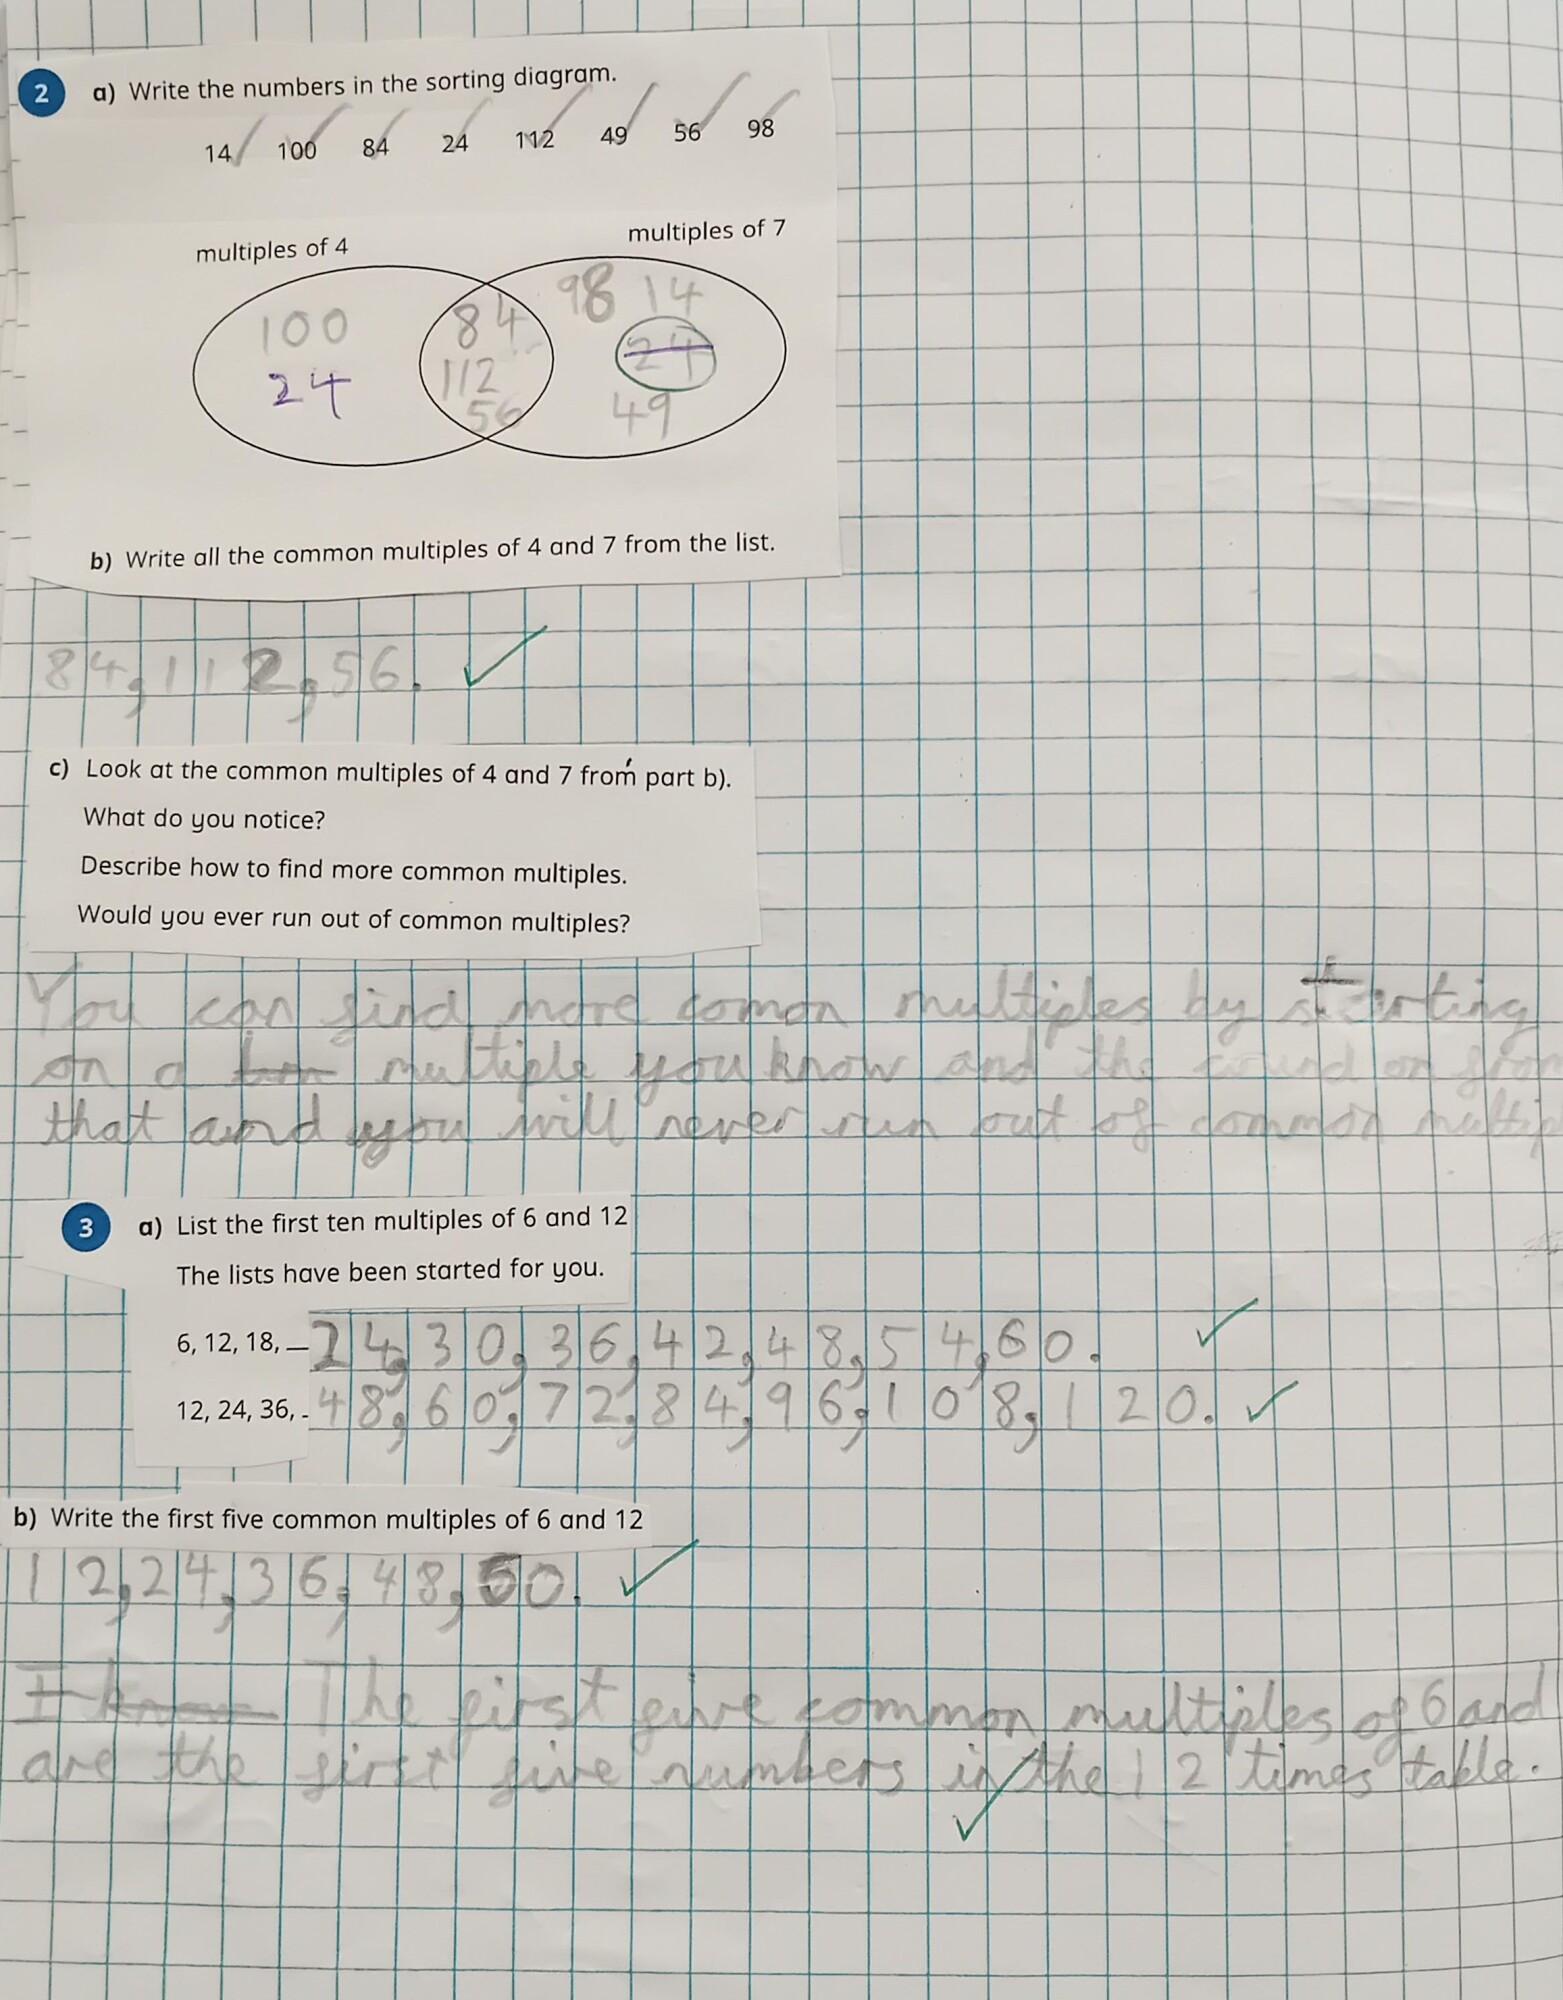 2 a) Write the numbers in the sorting diagram.
14 100 84 24 112 49 56 98
multiples of 4 multiples of 7
100 84 98 14
24 112 24
56 49
b) Write all the common multiples of 4 and 7 from the list.
84,112,56.
c) Look at the common multiples of 4 and 7 from part b).
What do you notice?
Describe how to find more common multiples.
Would you ever run out of common multiples?
You can find more comon multiples by starting
on a multiple you know and the cound on from
that and you will never run out of common multip
3 a) List the first ten multiples of 6 and 12
The lists have been started for you.
6, 12, 18, 24,30,36,42,48,54,60.
12, 24, 36, 48,60,72,84,96,108,120.
b) Write the first five common multiples of 6 and 12
12,24,36,48,60.
I know The first five common multiples of 6 and
are the first five numbers in the 12 times table.